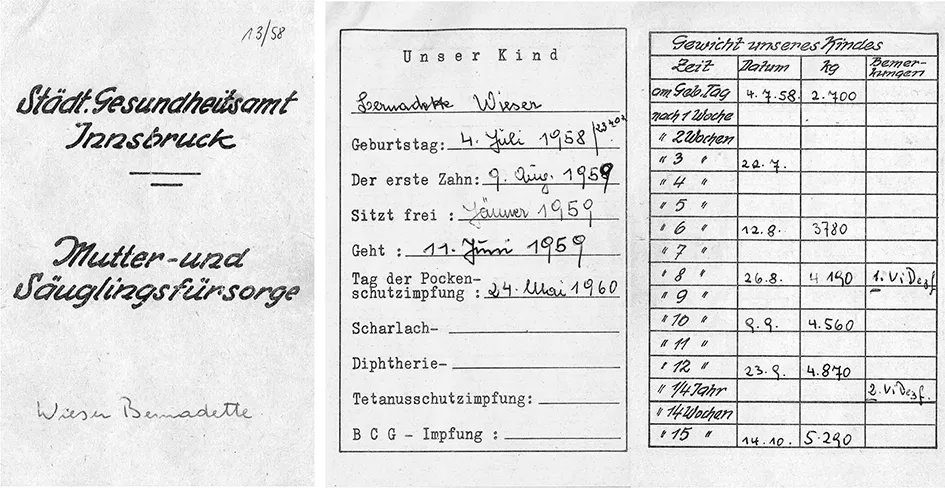 13/58
Städt. Gesundheitsamt
Innsbruck
Mutter- und
Säuglingsfürsorge
Wieser Bernadette
Unser Kind
Bernadette Wieser
Geburtstag: 4. Juli 1958/
Der erste Zahn: 9. Aug. 1959
Sitzt frei : Jänner 1959
Geht : 11. Juni 1959
Tag der Pocken-
schutzimpfung : 24. Mai 1960
Scharlach-
Diphtherie-
Tetanusschutzimpfung:
BCG - Impfung :
Gewicht unseres Kindes
Zeit Datum kg Bemer-
kungen
am Geb. Tag 4.7.58. 2.700
nach 1 Woche
" 2 Wochen
" 3 " 22.7.
" 4 "
" 5 "
" 6 " 12.8. 3780
" 7 "
" 8 " 26.8. 4.190 1. ViDe
" 9 "
" 10 " 9.9. 4.560
" 11 "
" 12 " 23.9. 4.870
" 1/4 Jahr 2. ViDe
" 14 Wochen
" 15 " 14.10. 5.290